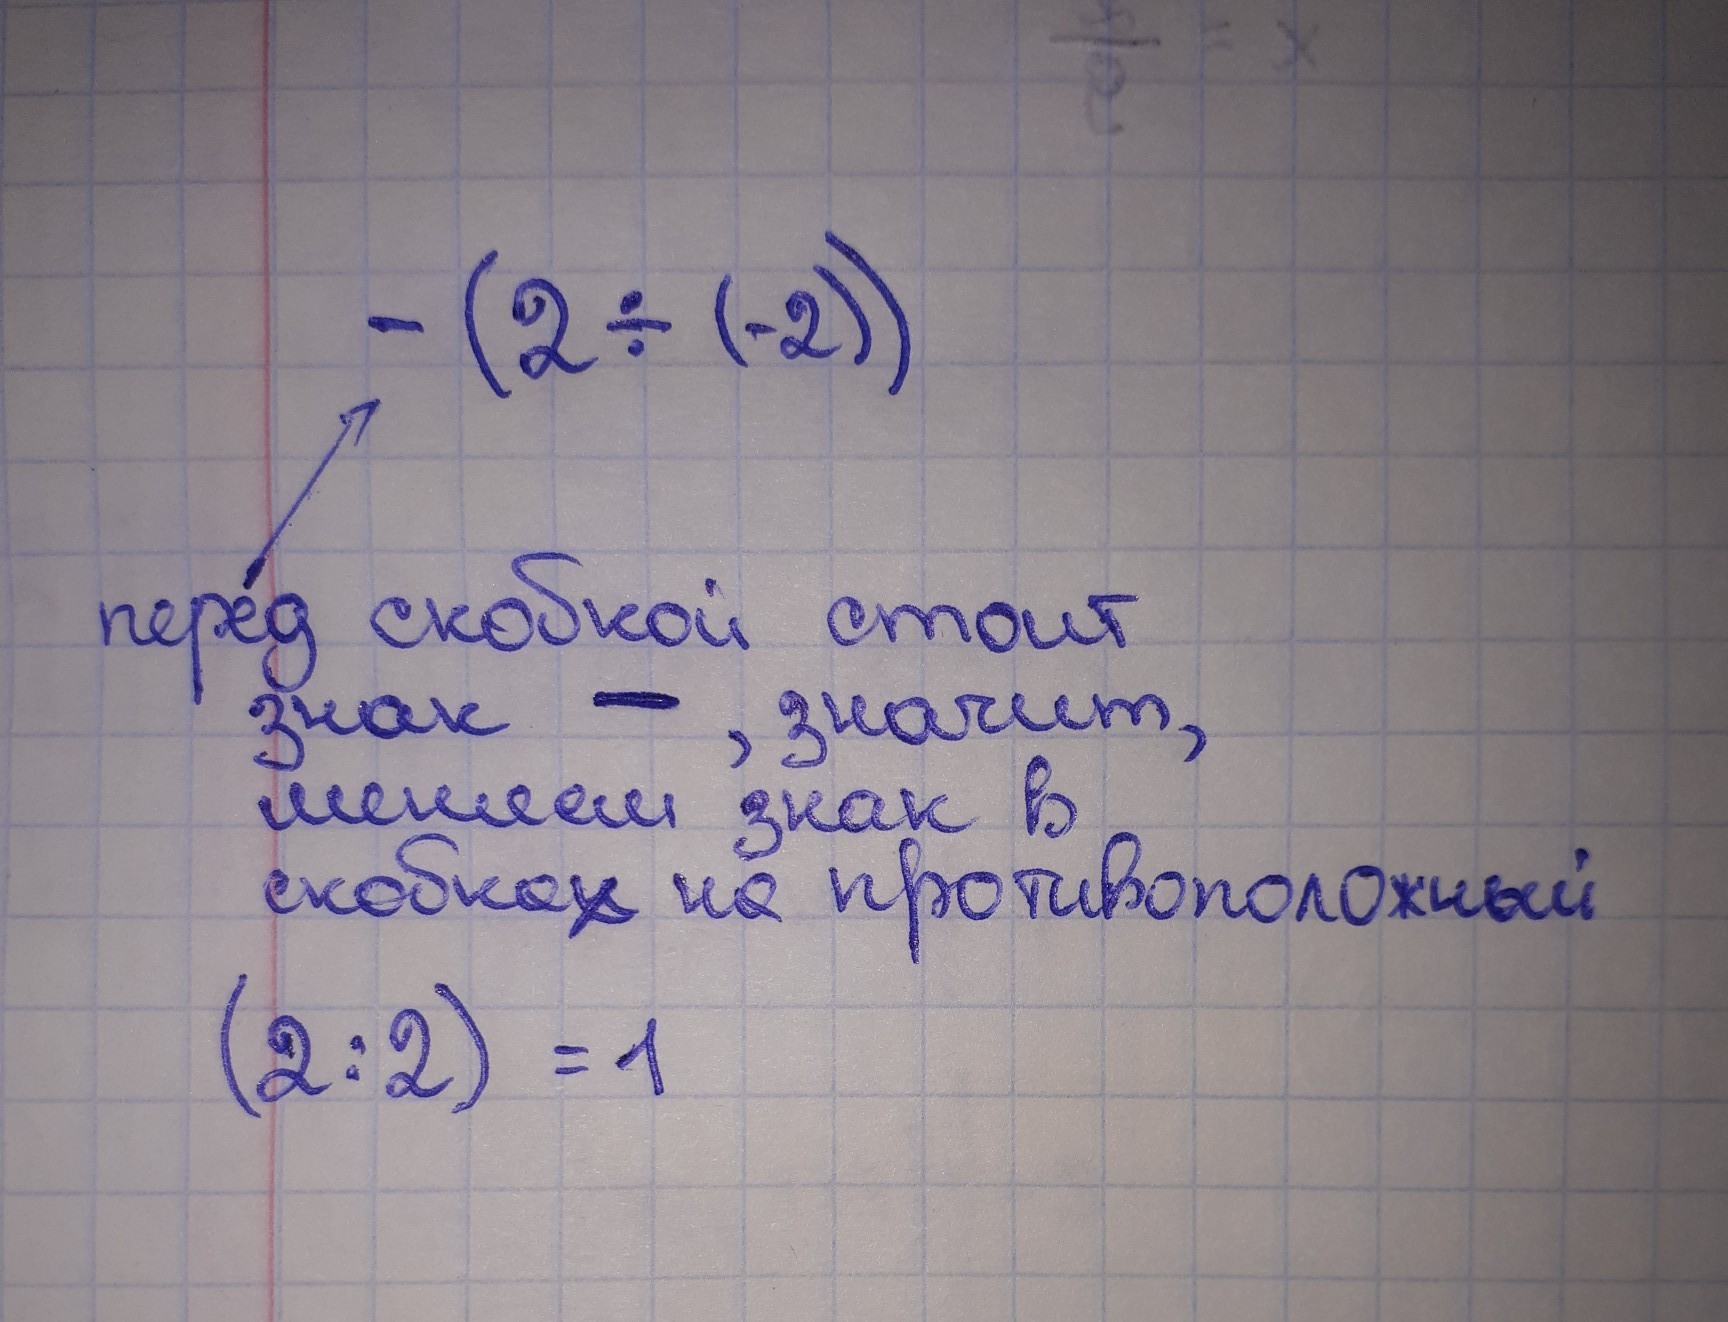 - (2 ÷ (-2))
перед скобкой стоит
знак - , значит,
меняем знак в
скобках на противоположный
(2 : 2) = 1